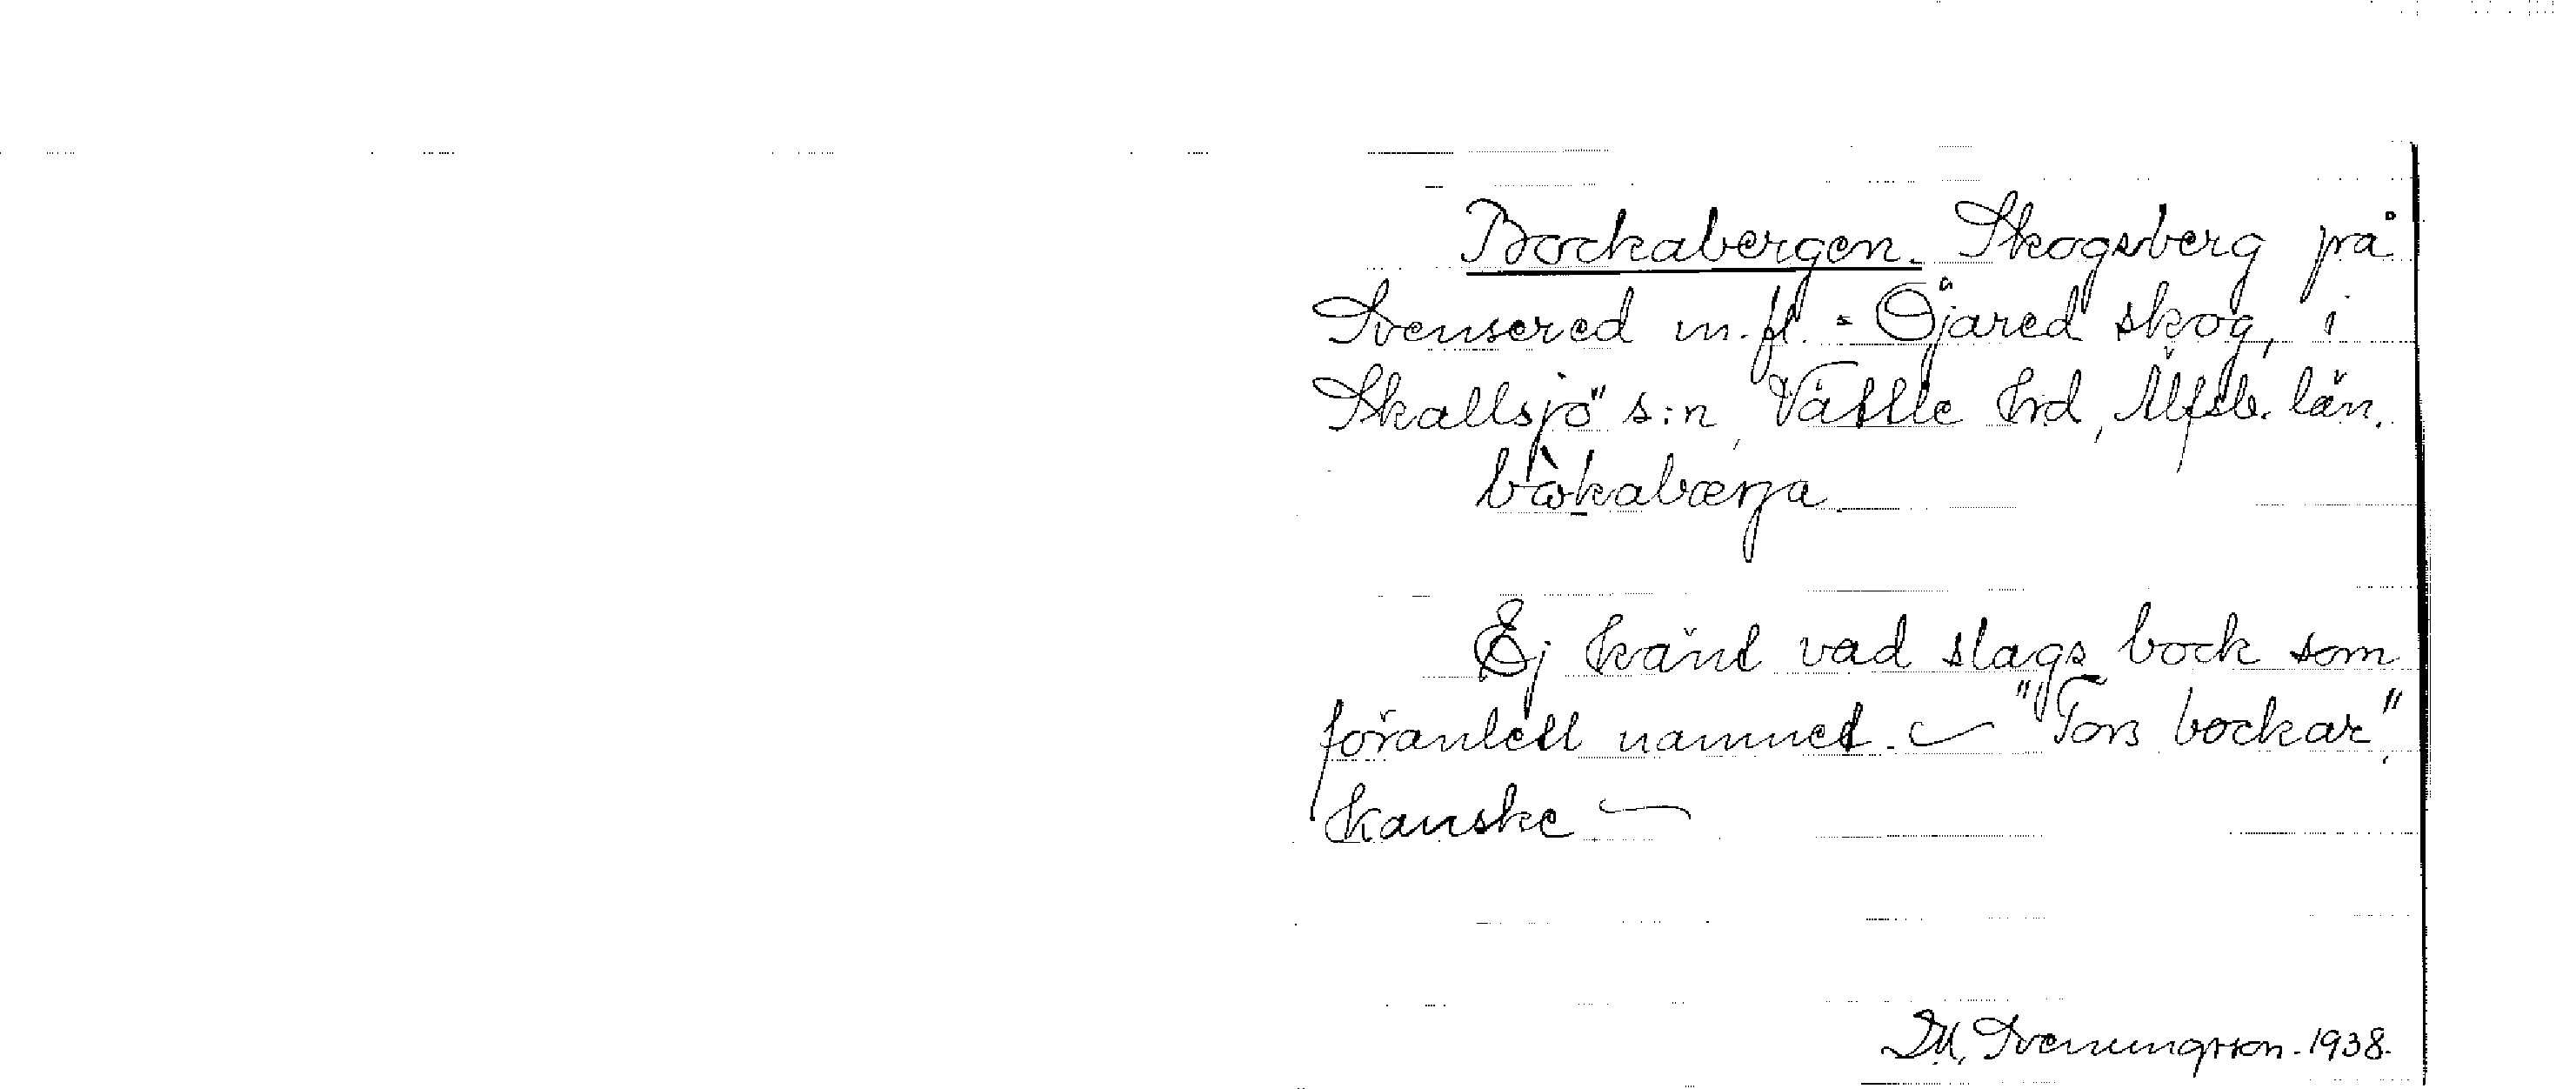 Bockabergen. Skogsberg på
Svensered m.fl. - Öjared skog, i
Skallsjö s:n, Vättle hd, Älfsb. län.
bòkabærja.
Ej känt vad slags bock som
föranlett namnet. — "Tors bockar",
kanske —
Svenungsson. 1938.